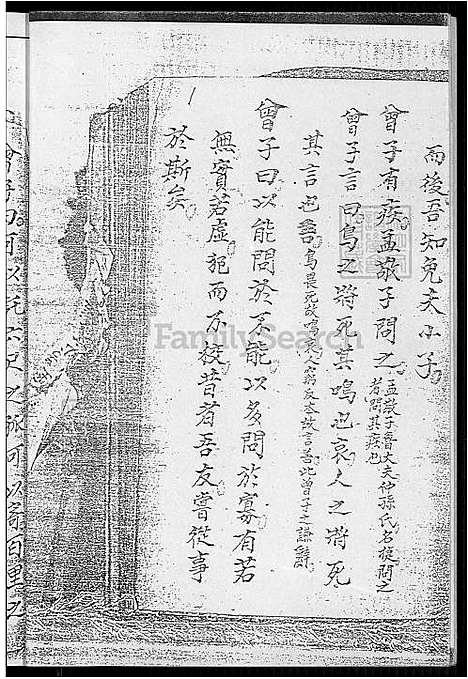 而後吾知免夫小子
曾子有疾孟敬子問之孟敬子魯大夫仲孫氏名捷問之者問其疾也
曾子言曰鳥之將死其鳴也哀人之將死
其言也善鳥畏死故鳴哀人窮反本故言善此曾子之謙辭
曾子曰以能問於不能以多問於寡有若
無實若虛犯而不校昔者吾友嘗從事
於斯矣
曾子曰可以託六尺之孤可以寄百里之
FamilySearch